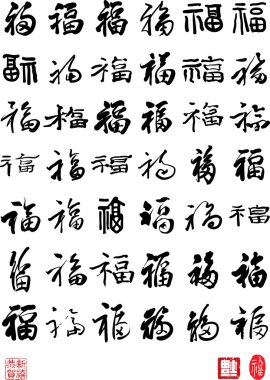 福福福福福福
福福福福福福
福福福福福福
福福福福福福
福福福福福福
福福福福福福
福福福福福福
恭賀新禧